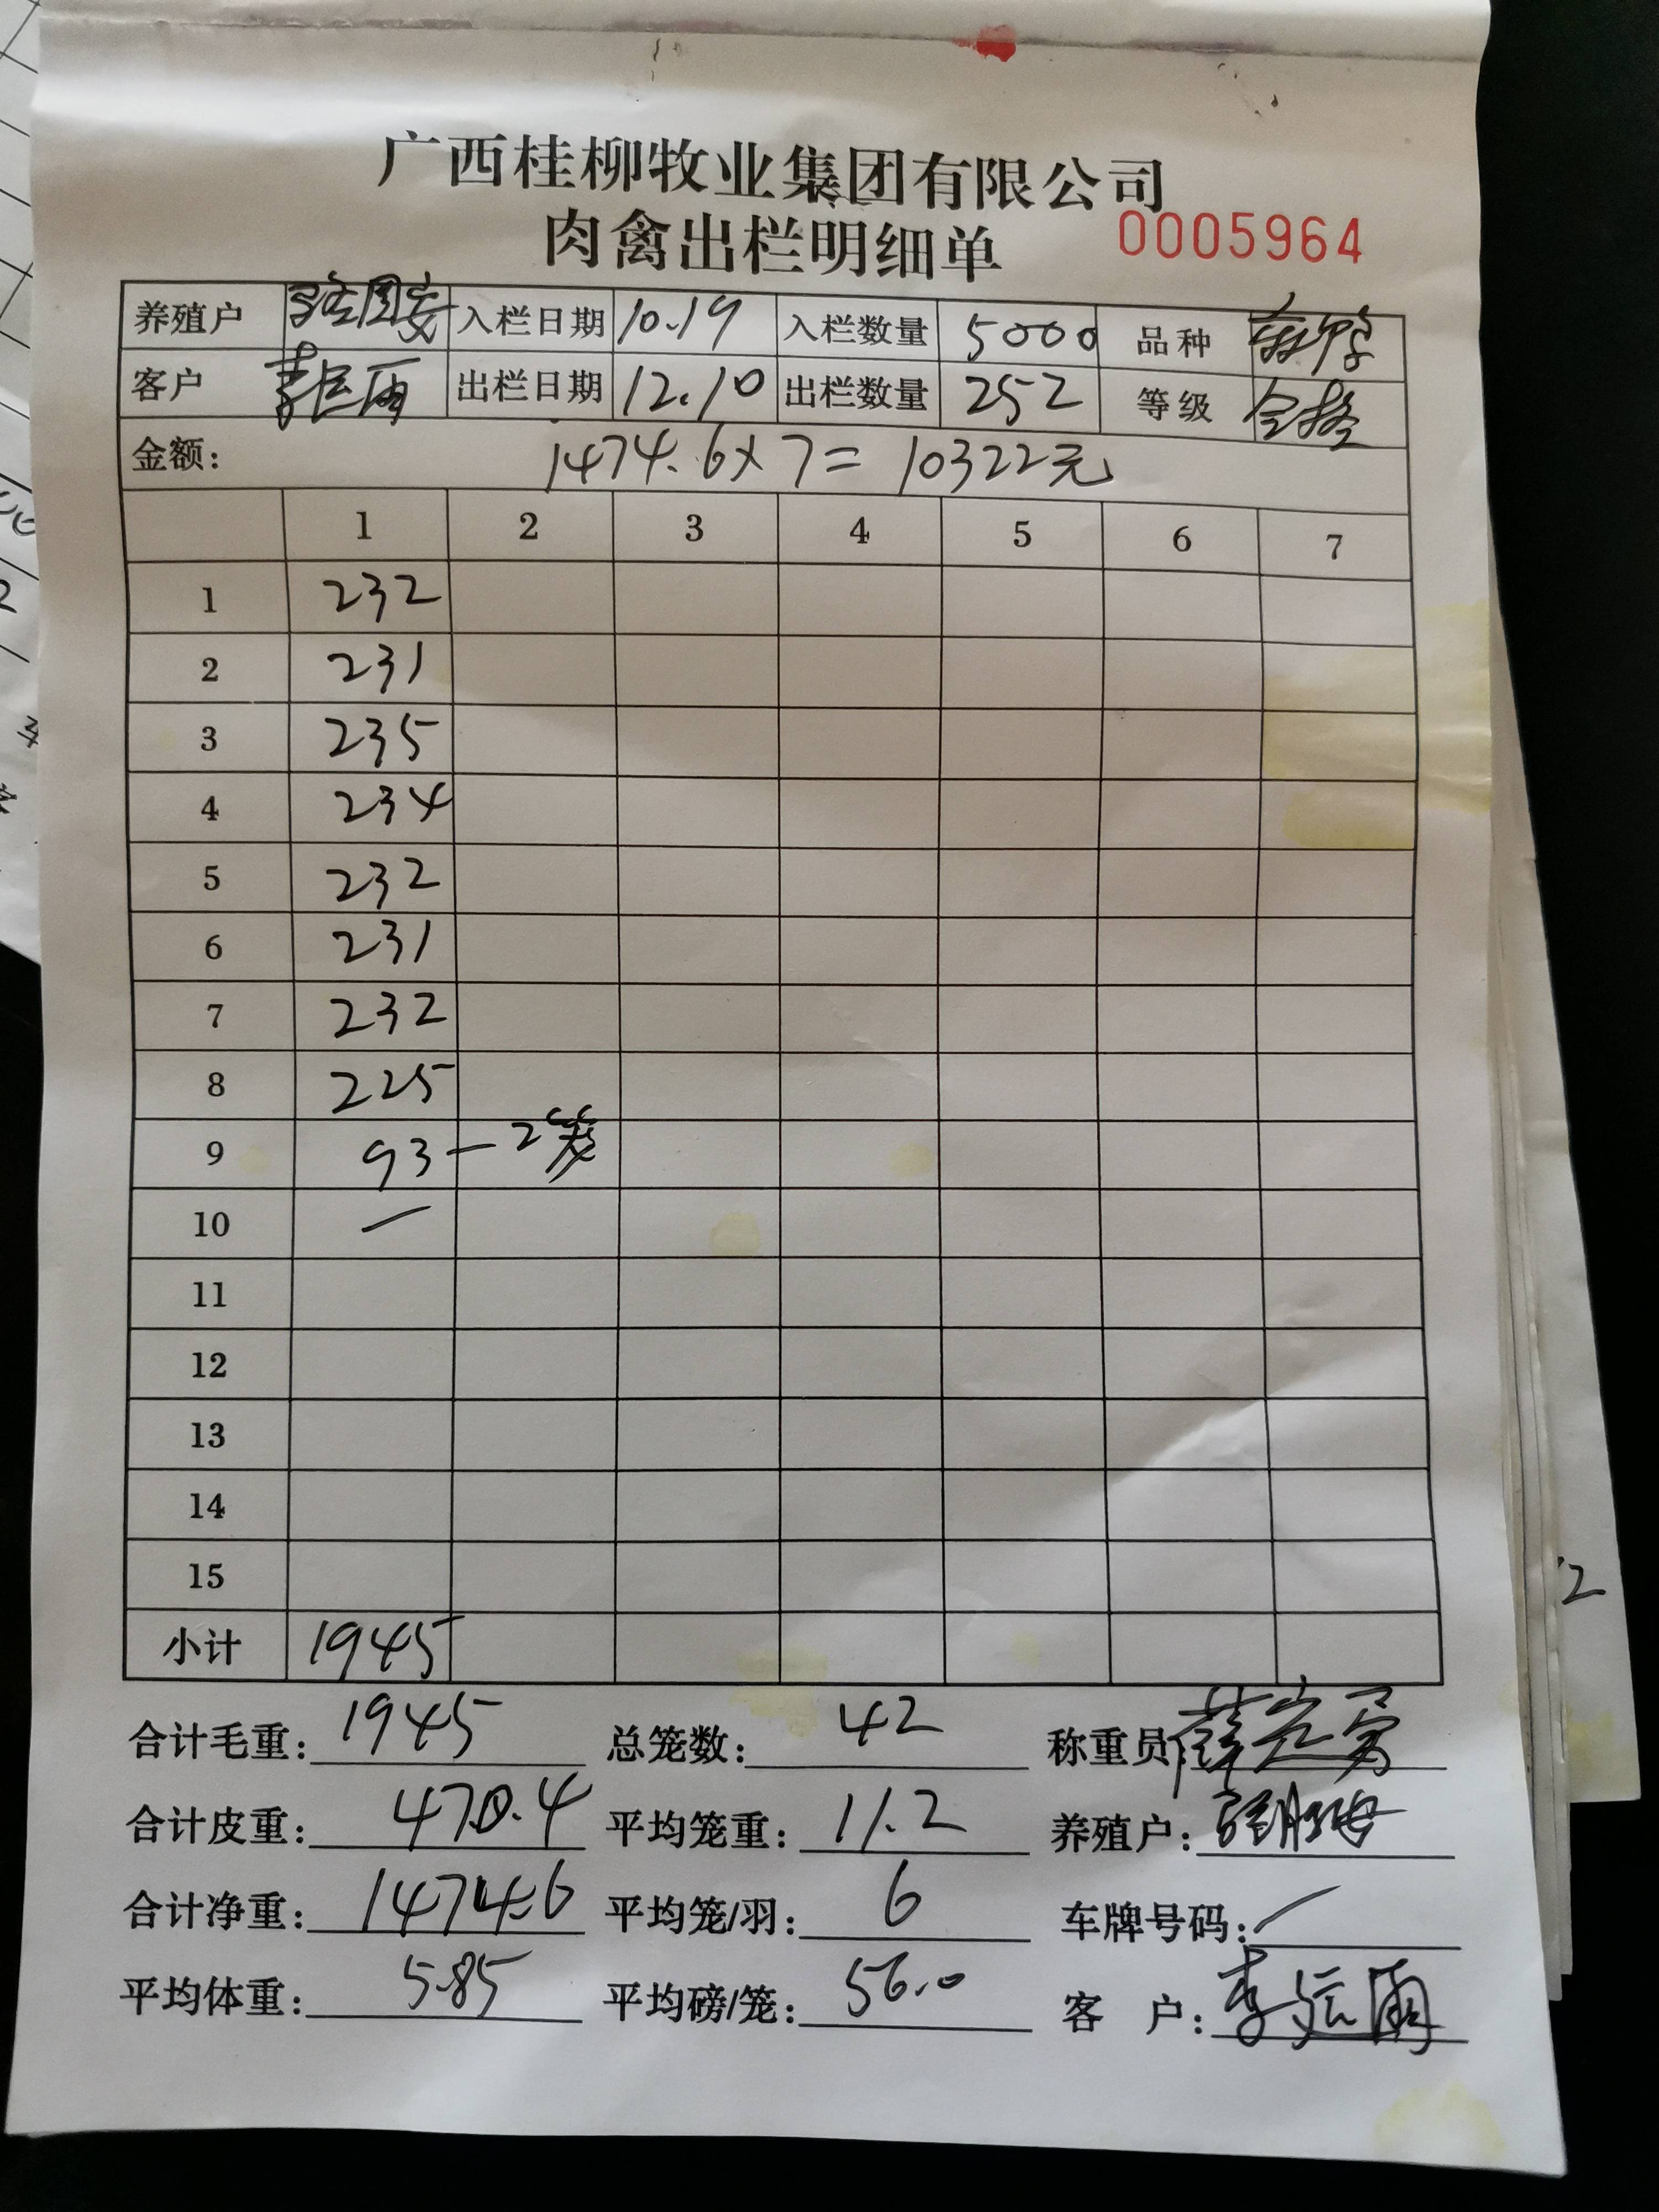 广西桂柳牧业集团有限公司
肉禽出栏明细单 0005964
养殖户 张国安 入栏日期 10.19 入栏数量 5000 品种
客户 李运雨 出栏日期 12.10 出栏数量 252 等级 合格
金额: 1474.6×7=10322元
1 2 3 4 5 6 7
1 232
2 231
3 235
4 234
5 232
6 231
7 232
8 225
9 93—2笼
10 —
11
12
13
14
15
小计 1945
合计毛重: 1945 总笼数: 42 称重员
合计皮重: 470.4 平均笼重: 11.2 养殖户:
合计净重: 1474.6 平均笼/羽: 6 车牌号码: /
平均体重: 5.85 平均磅/笼: 56.0 客 户: 李运雨